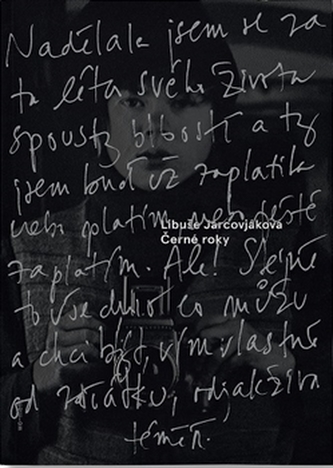 Nadělala jsem se za
ta léta svého života
spousty blbostí a ty
jsem buď už zaplatila
nebo platím nebo ještě
Libuše Jarcovjáková
Černé roky
zaplatím. Ale! Stejně
to vše
a chci být, vím vlastně
od začátku, odjakživa
téměř.